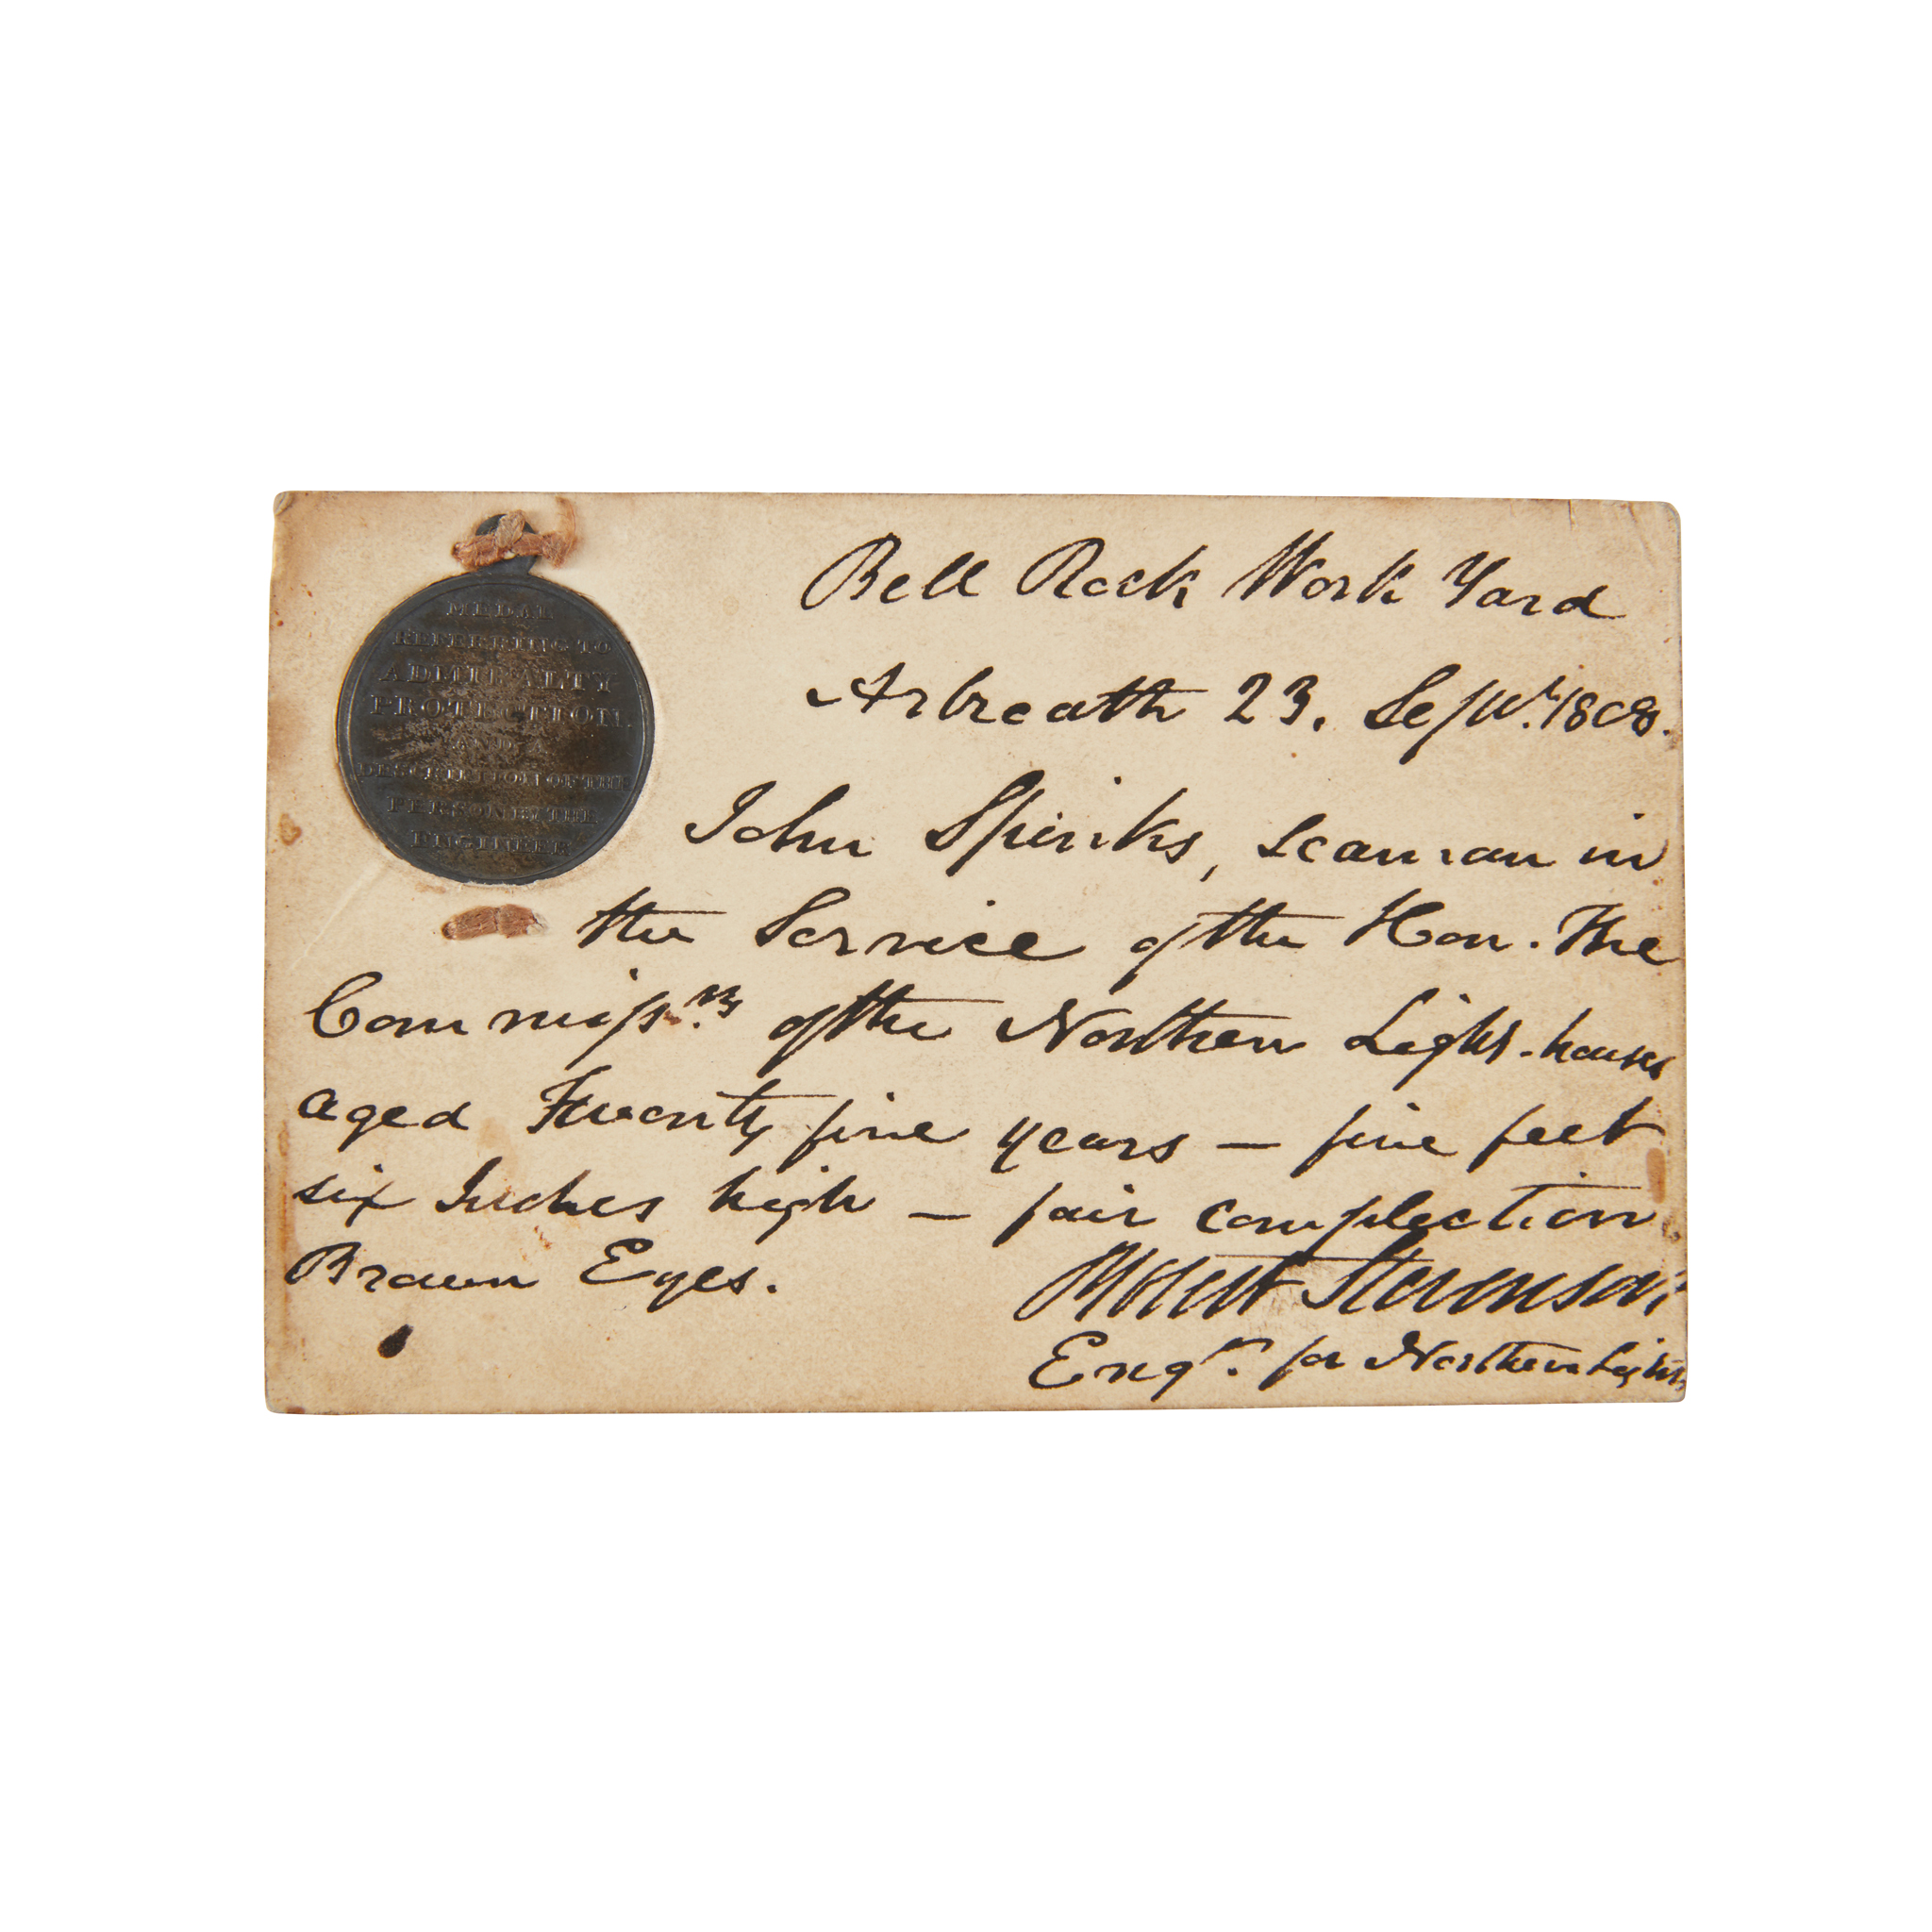 MEDAL
REFERRING TO
ADMIRALTY
PROTECTION
AND A
DESCRIPTION OF THE
PERSON BY THE
ENGINEER
Bell Rock Work Yard
Arbroath 23. Septr. 1808.
John Spinks, seaman in
the Service of the Hon. The
Commissrs. of the Northern Light-houses
aged Twenty five years — five feet
six Inches high — fair complection
Brown Eyes.
Robert Stevenson
Engr. for Northern Lights